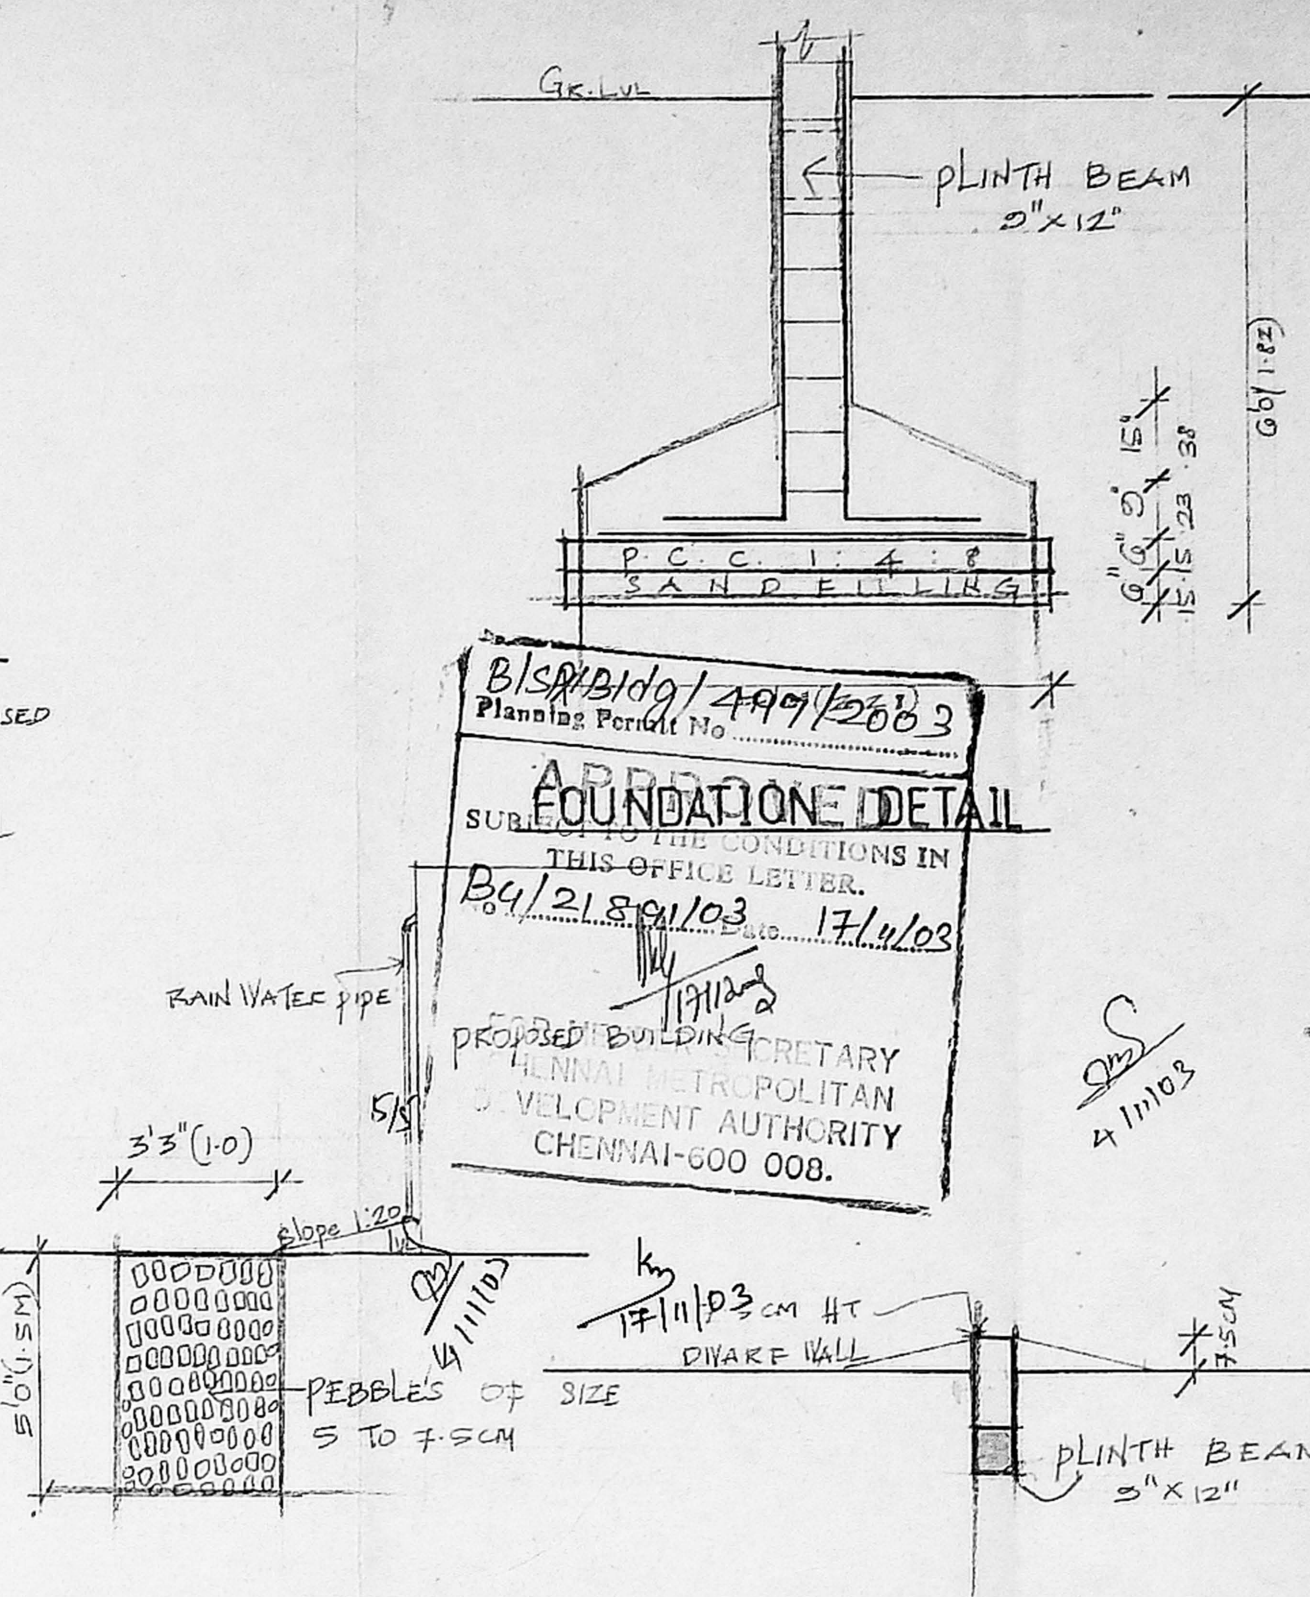 GR.LVL
PLINTH BEAM
9"X12"
6'0"(1.82)
15"
9"
6"
6"
.38
.23
.15
.15
P.C.C. 1:4:8
SAND FILLING
SED
B/SPl/Bldg/499/2003
Planning Permit No
APPROVED
FOUNDATION DETAIL
SUBJECT TO THE CONDITIONS IN
THIS OFFICE LETTER.
No B4/21891/03 Date 17/11/03
RAIN WATER PIPE
17/11/2003
PROPOSED BUILDING
FOR MEMBER SECRETARY
CHENNAI METROPOLITAN
DEVELOPMENT AUTHORITY
CHENNAI-600 008.
4/11/03
3'3"(1.0)
slope 1:20
5'0"(1.5M)
4/11/03
17/11/03
CM HT
DWARF WALL
7.5CM
PEBBLE'S OF SIZE
5 TO 7.5CM
PLINTH BEAM
9"X12"